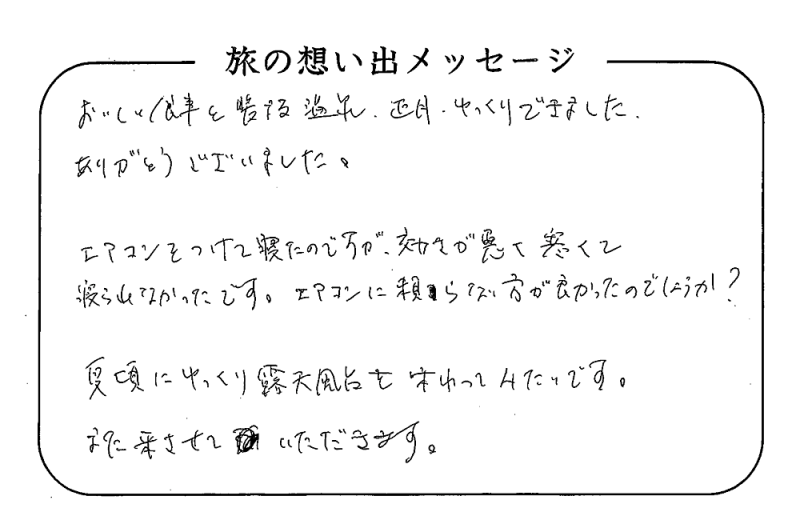 旅の想い出メッセージ
おいしい食事と 温泉、正月、ゆっくりできました、
ありがとうございました。
エアコンをつけて寝たのですが、効きが悪くて 寒くて
寝られなかったです。エアコンに頼らない方が良かったのでしょうか?
夏頃にゆっくり露天風呂を味わってみたいです。
また来させていただきます。